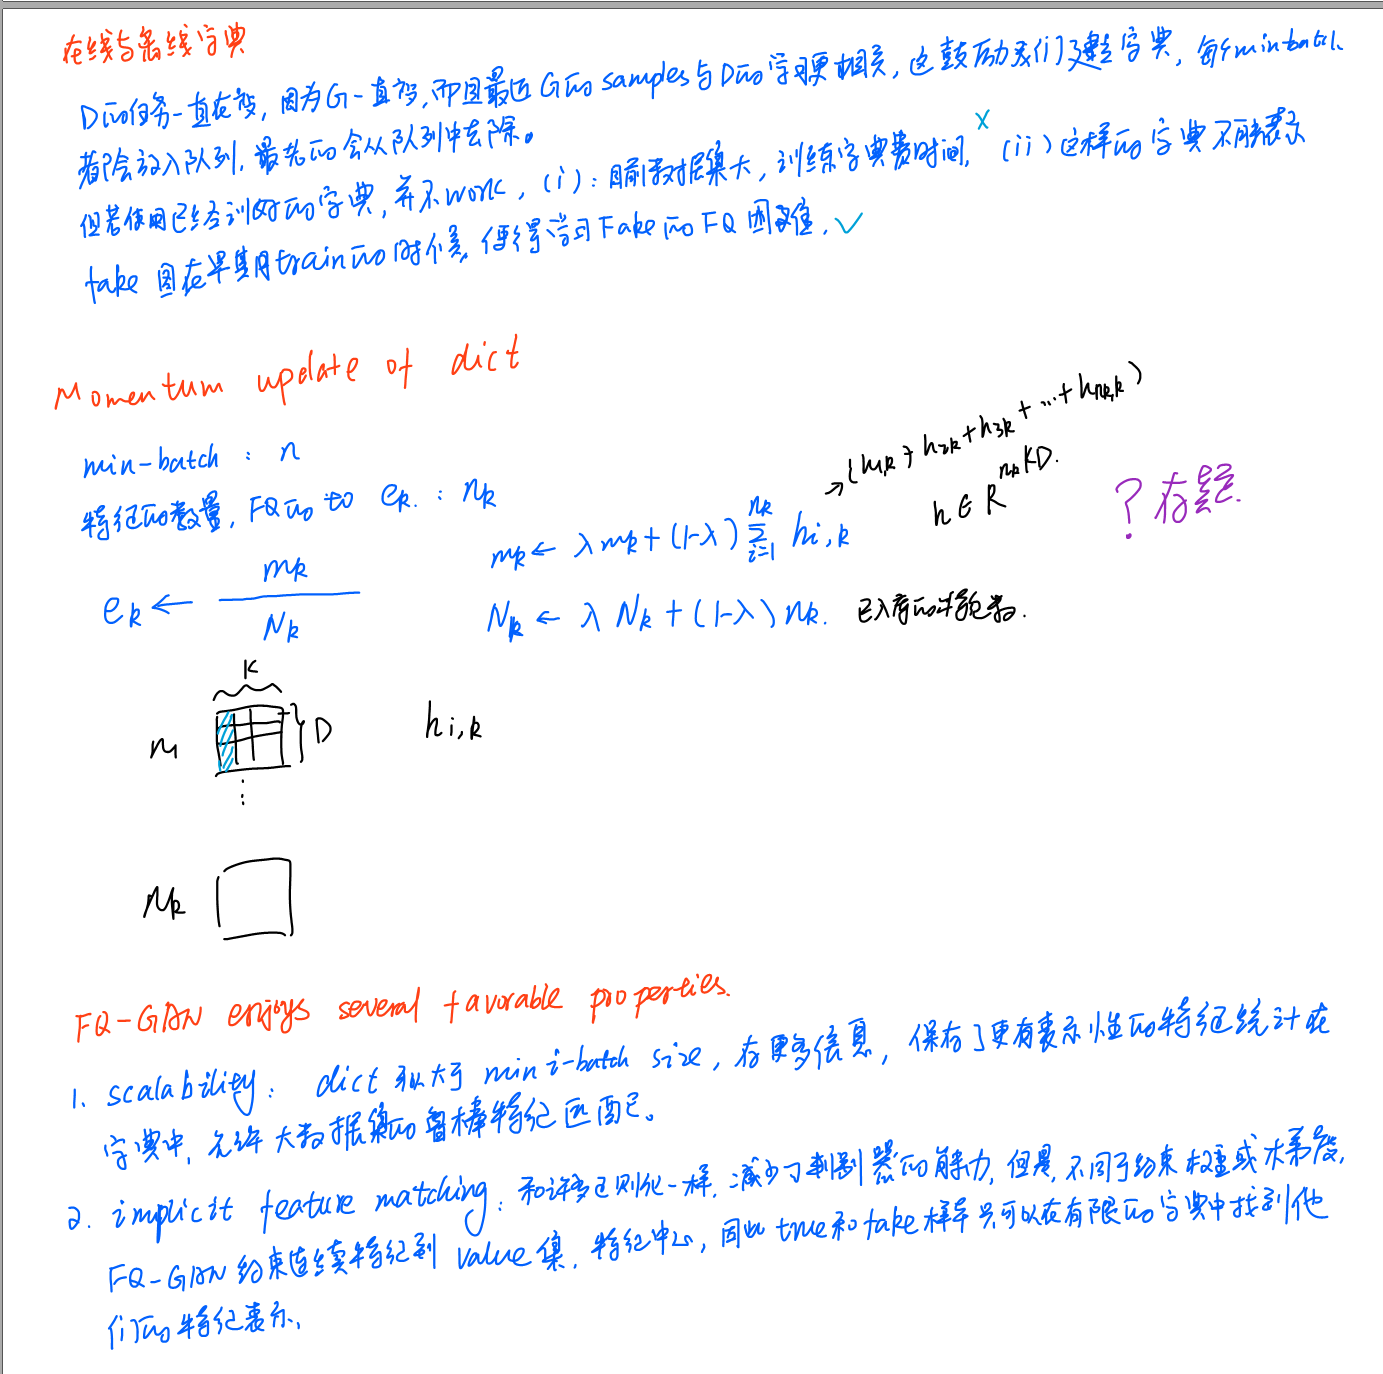 在线与离线字典
D的任务一直在变, 因为G一直变, 而且最近G的samples与D的学习更相关, 这鼓励我们建字典, 每个minbatch
都会放入队列, 最老的会从队列中去除。
但若使用已经训好的字典, 并不work, (i): 目前数据集大, 训练字典费时间, × (ii) 这样的字典不能表示
fake 图在早期train的时候, 使得学习Fake的FQ困难. ✓
Momentum update of dict
min-batch : n
特征的数量, FQ的 to e_k. : n_k
e_k ← m_k / N_k
m_k ← λ m_k + (1-λ) Σ_{i=1}^{n_k} h_{i,k}
→ (h_{1,k} + h_{2k} + h_{3k} + ... + h_{nk,k})
h ∈ R^{n_k KD}.
? 存疑.
N_k ← λ N_k + (1-λ) n_k.
K
n
D
h_{i,k}
⋮
N_k
FQ-GAN enjoys several favorable properties.
1. scalability: dict 可以大于 mini-batch size, 存更多信息, 保存了更有表示性的特征统计在
字典中, 允许大数据集的鲁棒特征匹配。
2. implicit feature matching: 和许多正则化一样, 减少了判别器的能力, 但是, 不同于约束权重或大梯度,
FQ-GAN 约束连续特征到 value 集, 特征中心, 因此 true 和 fake 样本只可以在有限的字典中找到他
们的特征表示,